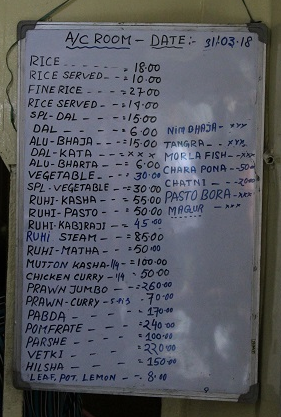 A/C ROOM - DATE:- 31-03-18
RICE - - - - - - = 18.00
RICE SERVED - - - = 10.00
FINE RICE - - - = 27.00
RICE SERVED - - = 14.00
SPL-DAL - - - - = 15.00
DAL - - - - = 6.00
ALU-BHAJA - - - = 15.00
DAL-KATA - - - x x x
ALU-BHARTA - - - 6.00
VEGETABLE - - - - 30.00
SPL-VEGETABLE - - = 30.00
RUHI-KASHA - - = 55.00
RUHI-PASTO - - = 50.00
RUHI-KABIRAJI - - 45.00
RUHI STEAM - - = 85.00
RUHI-MATHA - - = 50.00
MUTTON KASHA-1/4 - = 100.00
CHICKEN CURRY - 1/4 = 50.00
PRAWN JUMBO - - = 260.00
PRAWN-CURRY - - 70.00
PABDA - - - - - 170.00
POMFRATE - - - 240.00
PARSHE - - - - = 100.00
VETKI - - - - = 220.00
HILSHA - - - - = 150.00
LEAF. POT. LEMON - - 8.00
NIM BHAJA - xxx
TANGRA - - xxx
MORLA FISH - xxx
CHARA PONA - - 50
CHATNI - -
PASTO BORA - xxx
MAGUR - - xxx